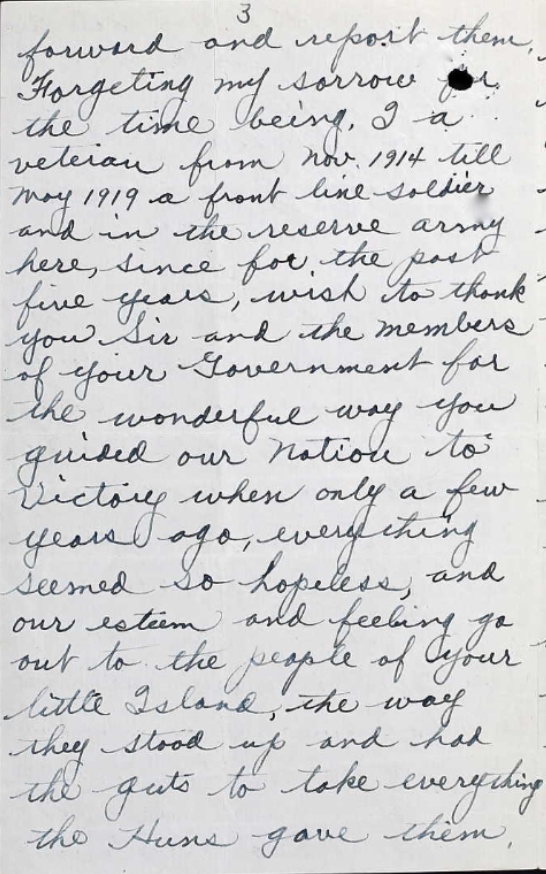 3
forward and report them.
Forgeting my sorrow for
the time being, I a
veteran from Nov. 1914 till
May 1919 a front line soldier
and in the reserve army
here, since for the past
five years, wish to thank
you Sir and the members
of your Government for
the wonderful way you
guided our Nation to
Victory when only a few
years ago, everything
seemed so hopeless, and
our esteem and feeling go
out to the people of your
little Island, the way
they stood up and had
the guts to take everything
the Huns gave them.